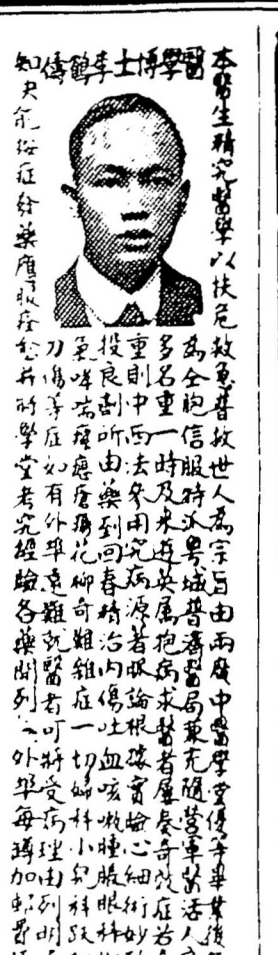 醫學博士李鶴儔
本醫生精究醫學以扶危救急普救世人為宗旨由兩廣中醫學堂優等畢業後
為全胞信服特派粤城普濟醫局兼充隨營軍醫活人
多名重一時及來遊英屬抱病求醫者屢奏奇效症若
重則中西法參用究病源著眼論根據實驗心細術妙
投良劑所由藥到回春精治內傷吐血咳嗽腫脹眼科
氣哮喘瘰癧瘡瘍花柳奇難雜症一切婦科小兒科跌
刀傷等症如有外埠遠難就醫者可將受病理由列明
知夫能按症給藥應手取痊於并所學堂考究經驗各藥開列 外埠每罇加郵費